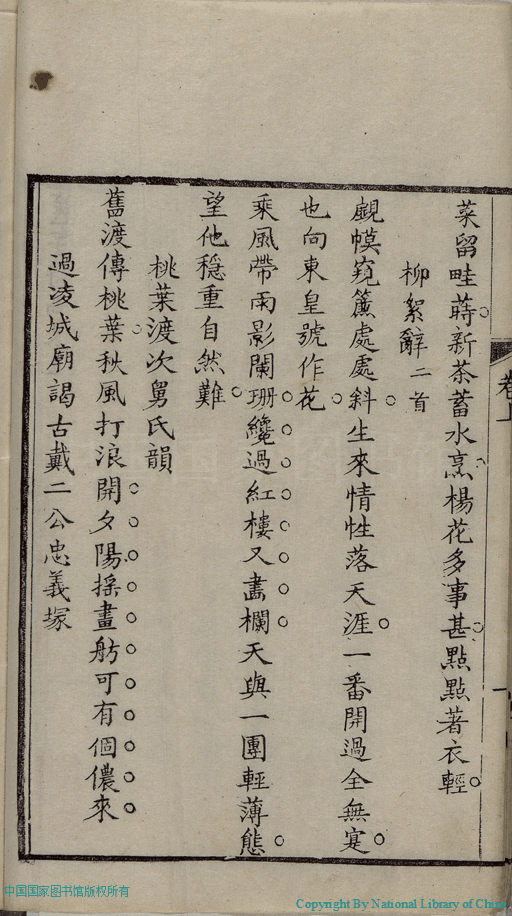 菜留畦蒔新茶蓄水烹楊花多事甚點點著衣輕
柳絮辭二首
覷幙窺簾處處斜生來情性落天涯一番開過全無寔
也向東皇號作花
乘風帶雨影闌珊纔過紅樓又畵欄天與一團輕薄態
望他穩重自然難
桃葉渡次舅氏韻
舊渡傳桃葉秋風打浪開夕陽採畫舫可有個儂來
過凌城廟謁古戴二公忠義塚
卷上
中国国家图书馆版权所有
Copyright By National Library of China